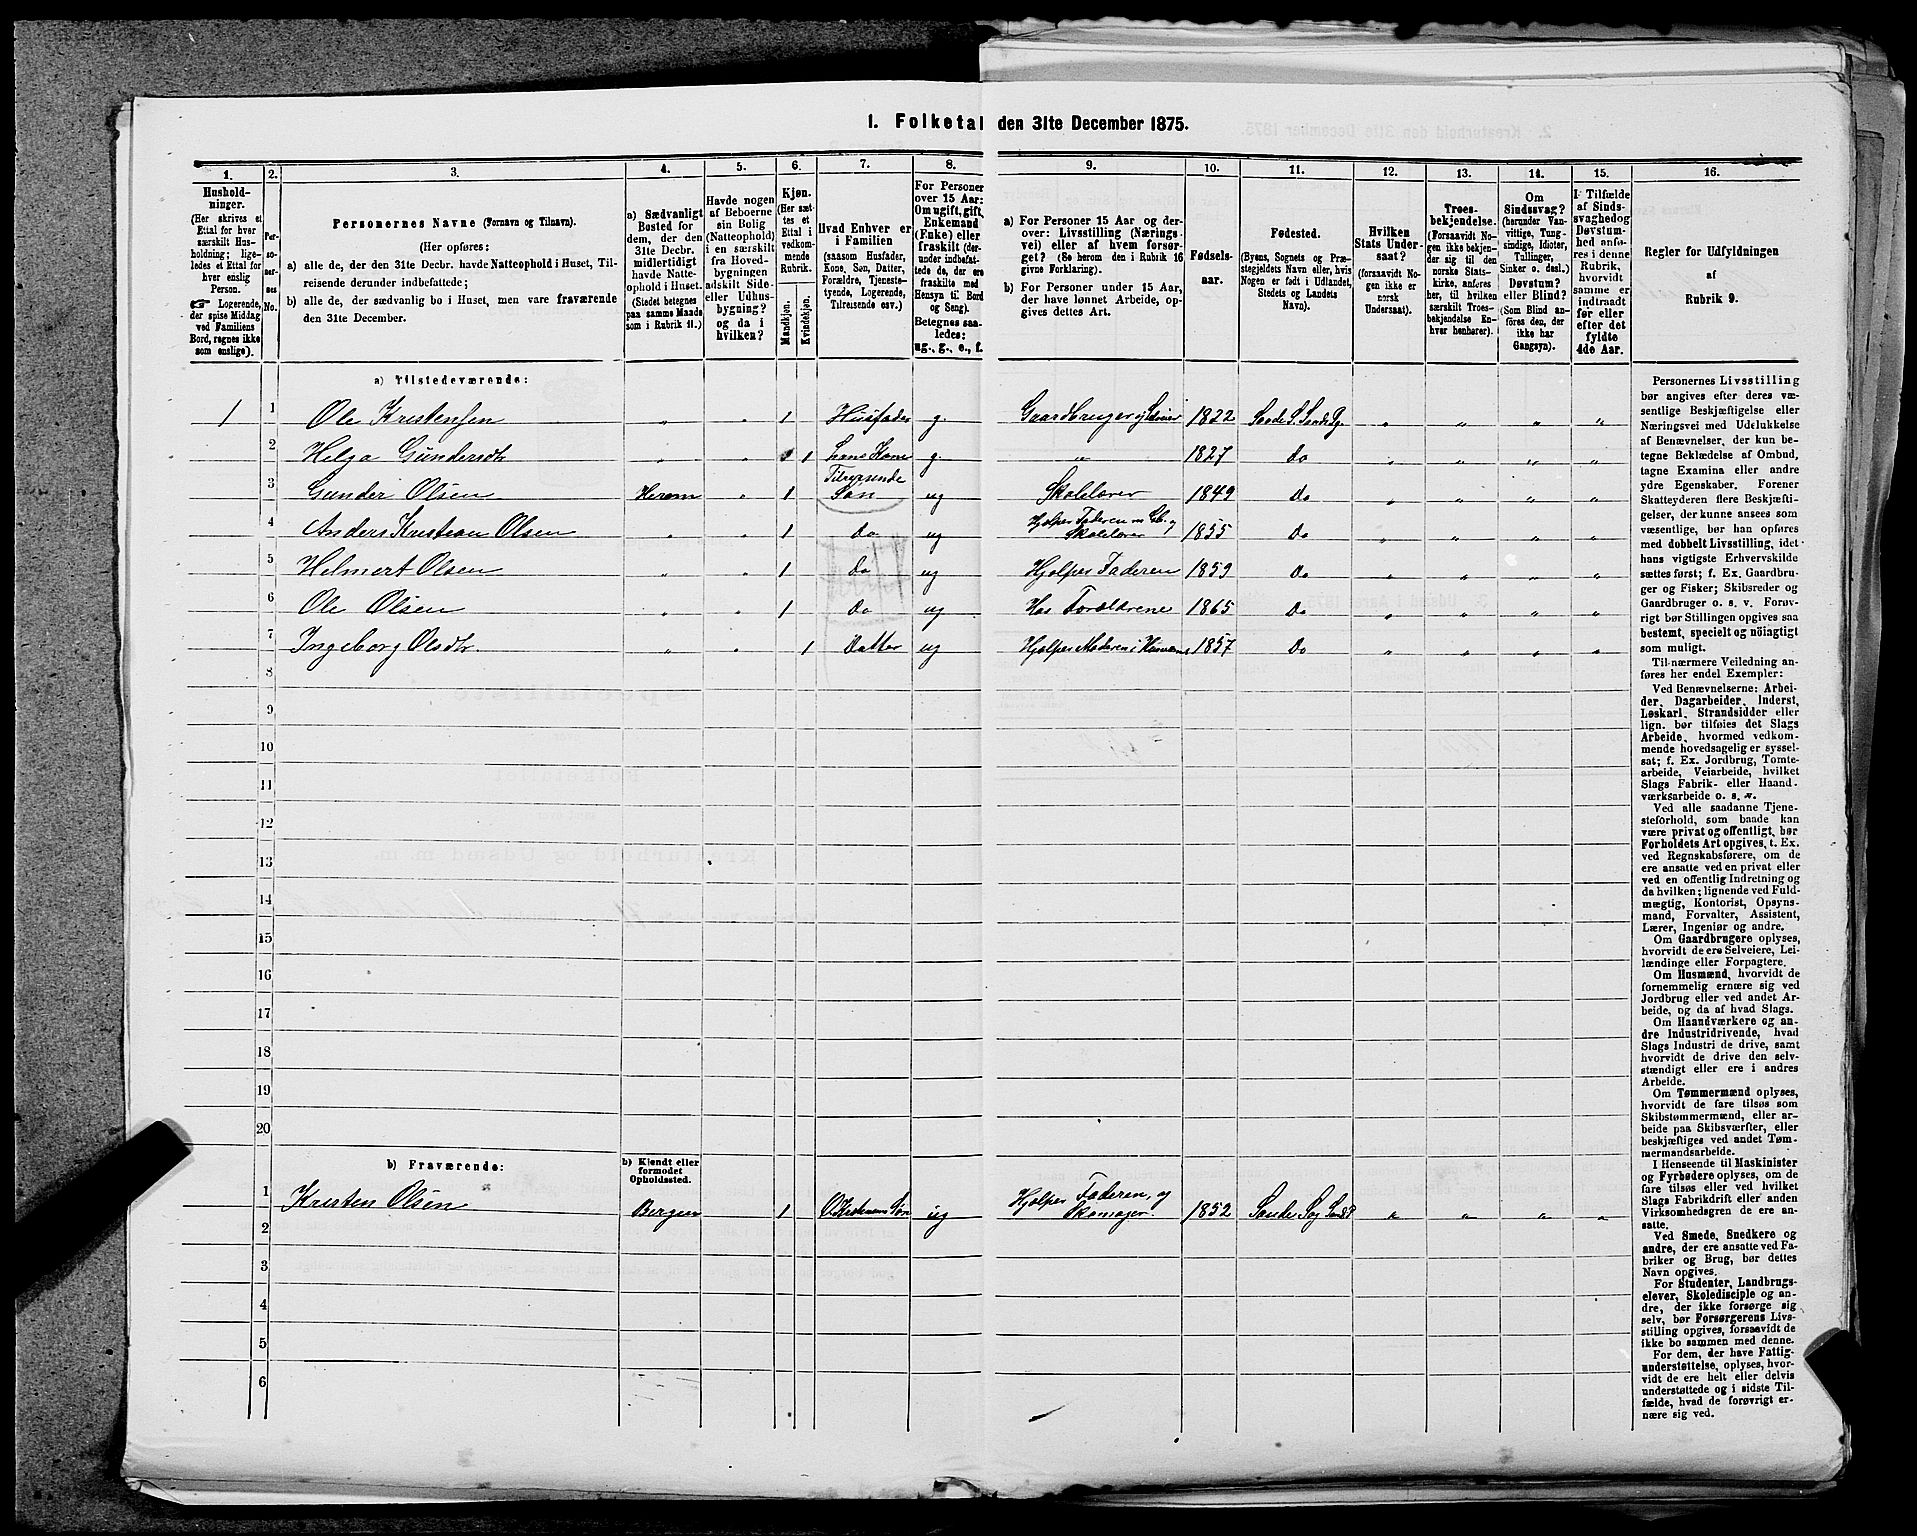 1. Folketal den 31te December 1875.
1.
2.
3.
4.
5.
6.
7.
8.
9.
10.
11.
12.
13.
14.
15.
16.
Hushold-
ninger.
(Her skrives et
Ettal for hver
særskilt Hus-
holdning; lige-
ledes et Ettal for
hver enslig
Person.
☛ Logerende,
der spise Middag
ved Familiens
Bord, regnes ikke
som enslige).
Per-
so-
ner-
nes
No.
Personernes Navne (Fornavn og Tilnavn).
(Her opføres:
a) alle de, der den 31te Decbr. havde Natteophold i Huset, Til-
reisende derunder indbefattede;
b) alle de, der sædvanlig bo i Huset, men vare fraværende
den 31te December.
a) Sædvanligt
Bosted for
dem, der den
31te Decbr.
midlertidigt
havde Natte-
ophold i Huset.
(Stedet betegnes
paa samme Maade
som i Rubrik 11.)
Havde nogen
af Beboerne
sin Bolig
(Natteophold)
i en særskilt
fra Hoved-
bygningen
adskilt Side-
eller Udhus-
bygning?
og da i
hvilken?
Kjøn.
(Her sæt-
tes et
Ettal i
vedkom-
mende
Rubrik.
Mandkjøn.
Kvindekjøn.
Hvad Enhver er
i Familien
(saasom Husfader,
Kone, Søn, Datter,
Forældre, Tjeneste-
tyende, Logerende,
Tilreisende osv.)
For Personer
over 15 Aar:
Om ugift, gift,
Enkemand
(Enke) eller
fraskilt (der-
under indbefat-
tede de, der ere
fraskilte med
Hensyn til Bord
og Seng).
Betegnes saa-
ledes:
ug., g., e., f.
a) For Personer 15 Aar og der-
over: Livsstilling (Nærings-
vei) eller af hvem forsør-
get? (Se herom den i Rubrik 16
givne Forklaring).
b) For Personer under 15 Aar,
der have lønnet Arbeide, op-
gives dettes Art.
Fødsels-
aar.
Fødested.
(Byens, Sognets og Præ-
stegjeldets Navn eller, hvis
Nogen er født i Udlandet,
Stedets og Landets
Navn).
Hvilken
Stats Under-
saat?
(forsaavidt No-
gen ikke er
norsk
Undersaat).
Troes-
bekjendelse.
(Forsaavidt No-
gen ikke bekjen-
der sig til den
norske Stats-
kirke, anføres
her, til hvilken
særskilt Troes-
bekjendelse En-
hver henhører).
Om
Sindssvag?
(herunder Van-
vittige, Tung-
sindige, Idioter,
Tullinger,
Sinker o. desl.)
Døvstum?
eller Blind?
(Som Blind an-
føres den, der
ikke har
Gangsyn).
I Tilfælde
af Sinds-
svaghed og
Døvstum-
hed anfø-
res i denne
Rubrik,
hvorvidt
samme er
indtraadt
før eller
efter det
fyldte
4de Aar.
Regler for Udfyldningen
af
Rubrik 9.
a) Tilstedeværende:
1 1 Ole Kristensen „ „ 1 Husfader g. Gaardbruger og 1822 Sande S. Sande Pg. „ „ „ „
2 Helga Gundersdtr „ „ 1 hans Kone g. „ 1827 Do „ „ „ „
3 Gunder Olsen „ 1 Tilreisende Søn ug Skolelærer 1849 Do „ „ „ „
4 Anders Kristian Olsen „ „ 1 Do ug Hjælper Faderen og Skolelærer 1855 Do „ „ „ „
5 Helmert Olsen „ „ 1 Do ug Hjælper Faderen 1859 Do „ „ „ „
6 Ole Olsen „ „ 1 Do ug Hos Forældrene 1865 Do „ „ „ „
7 Ingeborg Olsdtr. „ „ 1 Datter ug Hjælper Moderen i 1857 Do „ „ „ „
8
9
10
11
12
13
14
15
16
17
18
19
20
b) Fraværende:
b) Kjendt eller
formodet
Opholdssted.
1 Kristen Olsen Bergen 1 Søn ug Hjælper Faderen, og Skomager. 1852 Sande Sog „ „ „ „
2
3
4
5
6
Personernes Livsstilling
bør angives efter deres væ-
sentlige Beskjæftigelse eller
Næringsvei med Udelukkelse
af Benævnelser, der kun be-
tegne Beklædelse af Ombud,
tagne Examina eller andre
ydre Egenskaber. Forener
Skatteyderen flere Beskjæfti-
gelser, der kunne ansees som
væsentlige, bør han opføres
med dobbelt Livsstilling, idet
hans vigtigste Erhvervskilde
sættes først; f. Ex. Gaardbru-
ger og Fisker; Skibsreder og
Gaardbruger o. s. v. Forøv-
rigt bør Stillingen opgives saa
bestemt, specielt og nöiagtigt
som muligt.
Til nærmere Veiledning an-
føres her endel Exempler:
Ved Benævnelserne: Arbei-
der, Dagarbeider, Inderst,
Løskarl, Strandsidder eller
lign. bør tilføies det Slags
Arbeide, hvormed vedkom-
mende hovedsagelig er syssel-
sat; f. Ex. Jordbrug, Tomte-
arbeide, Veiarbeide, hvilket
Slags Fabrik- eller Haand-
værksarbeide o. s. v.
Ved alle saadanne Tjene-
steforhold, som baade kan
være privat og offentligt, bør
Forholdets Art opgives, t. Ex.
ved Regnskabsførere, om de
ere ansatte ved en privat eller
ved en offentlig Indretning og
da hvilken; lignende ved Fuld-
mægtig, Kontorist, Opsyns-
mand, Forvalter, Assistent,
Lærer, Ingeniør og andre.
Om Gaardbrugere oplyses,
hvorvidt de ere Selveiere, Lei-
lændinge eller Forpagtere.
Om Husmænd, hvorvidt de
fornemmelig ernære sig ved
Jordbrug eller ved andet Ar-
beide, og da af hvad Slags.
Om Haandværkere og an-
dre Industridrivende, hvad
Slags Industri de drive, samt
hvorvidt de drive den selv-
stændigt eller ere i andres
Arbeide.
Om Tømmermænd oplyses,
hvorvidt de fare tilsøs som
Skibstømmermænd, eller ar-
beide paa Skibsværfter, eller
beskjæftiges ved andet Tøm-
mermandsarbeide.
I Henseende til Maskinister
og Fyrbødere oplyses, om de
fare tilsøs eller ved hvilket
Slags Fabrikdrift eller anden
Virksomhedsgren de ere an-
satte.
Ved Smede, Snedkere og
andre, der ere ansatte ved Fa-
briker og Brug, bør dettes
Navn opgives.
For Studenter, Landbrugs-
elever, Skoledisciple og an-
dre, der ikke forsørge sig
selv, bør Forsørgerens Livs-
stilling opgives, forsaavidt de
ikke bo sammen med denne.
For dem, der have Fattig-
understøttelse, oplyses, hvor-
vidt de ere helt eller delvis
understøttede og i sidste Til-
fælde, hvad de forøvrigt er-
nære sig ved.